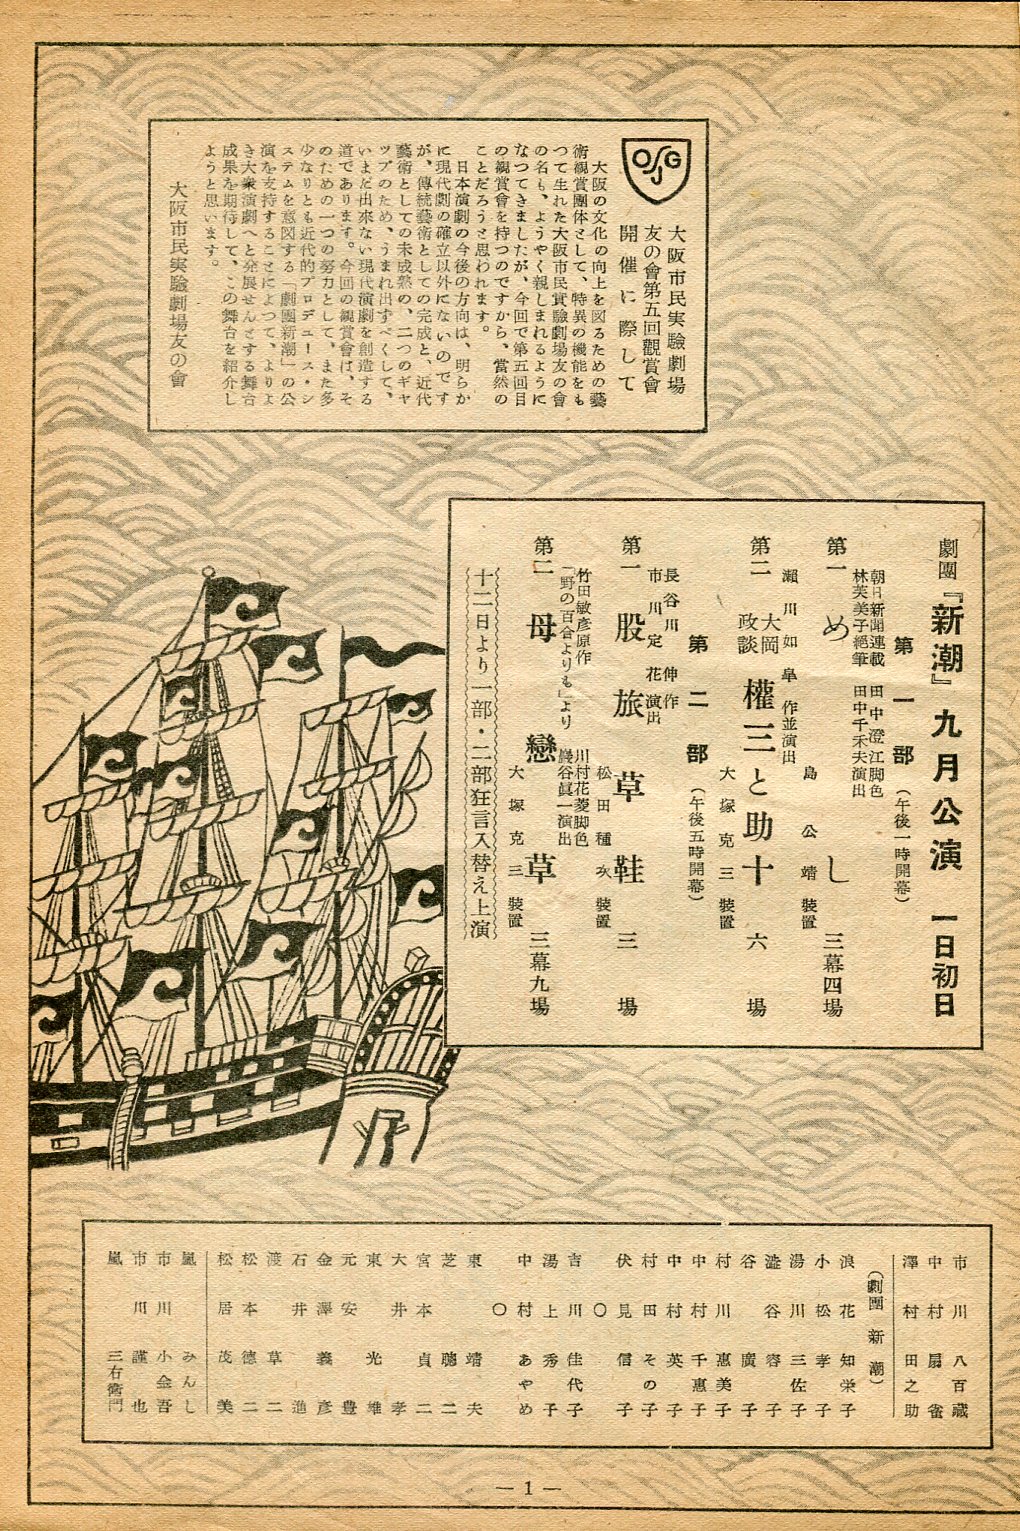 OSJG
大阪市民実驗劇場
友の會第五回觀賞會
開催に際して
大阪の文化の向上を図るための藝
術観賞團体として、特異の機能をも
つて生れた大阪市民實驗劇場友の會
の名も、ようやく親しまれるように
なつてきましたが、今回で第五回目
の観賞會を持つのですから、當然の
ことだろうと思われます。
日本演劇の今後の方向は、明らか
に現代劇の確立以外にないのです
が、傳統藝術としての完成と、近代
藝術としての未成熟の、二つのギャ
ップのため、うまれ出すべくして、
いまだ出來ない現代演劇を創造する
道であります。今回の観賞會は、そ
のための一つの努力として、また多
少なりとも近代的プロデュース・シ
ステムを意図する「劇團新潮」の公
演を支持することによつて、よりよ
き大衆演劇へと発展せんとする舞台
成果を期待して、この舞台を紹介し
ようと思います。
大阪市民実驗劇場友の會
劇團『新潮』九月公演 一日初日
第一部(午後一時開幕)
朝日新聞連載 田中澄江脚色
林芙美子絕筆 田中千禾夫演出
第一 めし 三幕四場
島公靖裝置
瀬川如皐作並演出
第二 大岡政談 權三と助十 六場
大塚克三裝置
第二部(午後五時開幕)
長谷川伸作
市川定花演出
第一 股旅草鞋 三場
松田種次裝置
竹田敏彦原作 川村花菱脚色
「野の百合よりも」より 巖谷眞一演出
第二 母戀草 三幕九場
大塚克三裝置
十二日より一部・二部狂言入替え上演
市川八百蔵
中村扇雀
澤村田之助
(劇團新潮)
浪花知栄子
小松孝子
湯川三佐子
澁谷容子
谷廣子
村川惠美子
中村千惠子
中村英子
村田その子
伏見信子
〇
吉川佳代子
湯上秀子
中村あやめ
〇
東靖夫
芝聰二
宮本貞二
大井孝
東光雄
元安豊
金澤義彦
石井進
渡草二
松本德二
松居茂美
嵐みんし
市川小金吾
市川謹也
嵐三右衛門
— 1 —